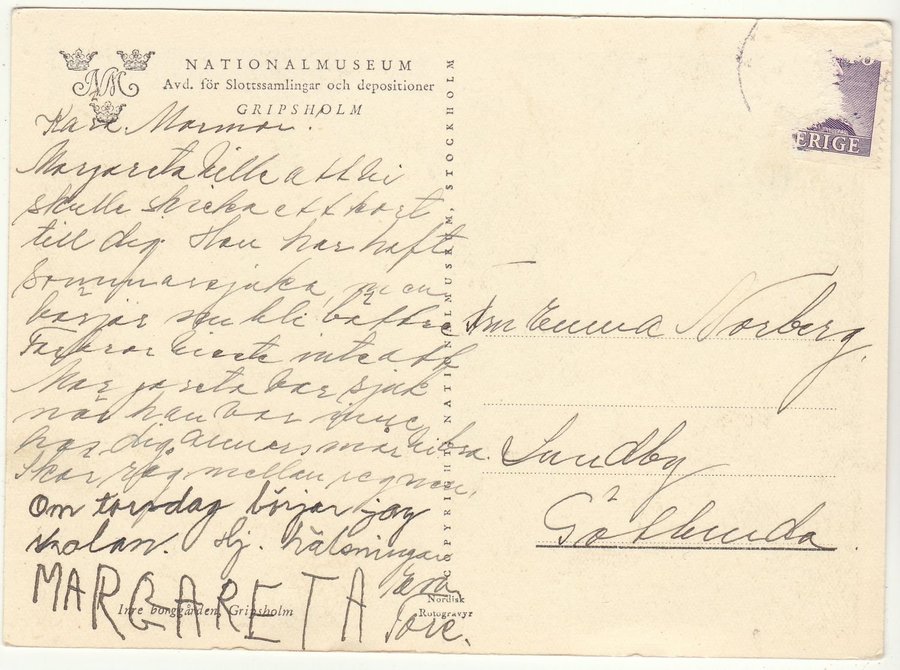 NATIONALMUSEUM
Avd. för Slottssamlingar och depositioner
GRIPSHOLM
Kära Mormor!
Margareta ville att vi
skulle skicka ett kort
till dig. Hon har haft
sommarsjuka, men
börjar nu bli bättre
Farfar visste inte att
Margareta var sjuk
när han var inne
hos dig annars mår vi bra.
Skär råg mellan regnen.
Om torsdag börjar jag
skolan. Hj. hälsningar
Eva
MARGARETA
Tore.
Inre borggården, Gripsholm
Nordisk
Rotogravyr
COPYRIGHT NATIONALMUSEUM, STOCKHOLM
ERIGE
Fru Emma Norberg.
Sundby
Götlunda.